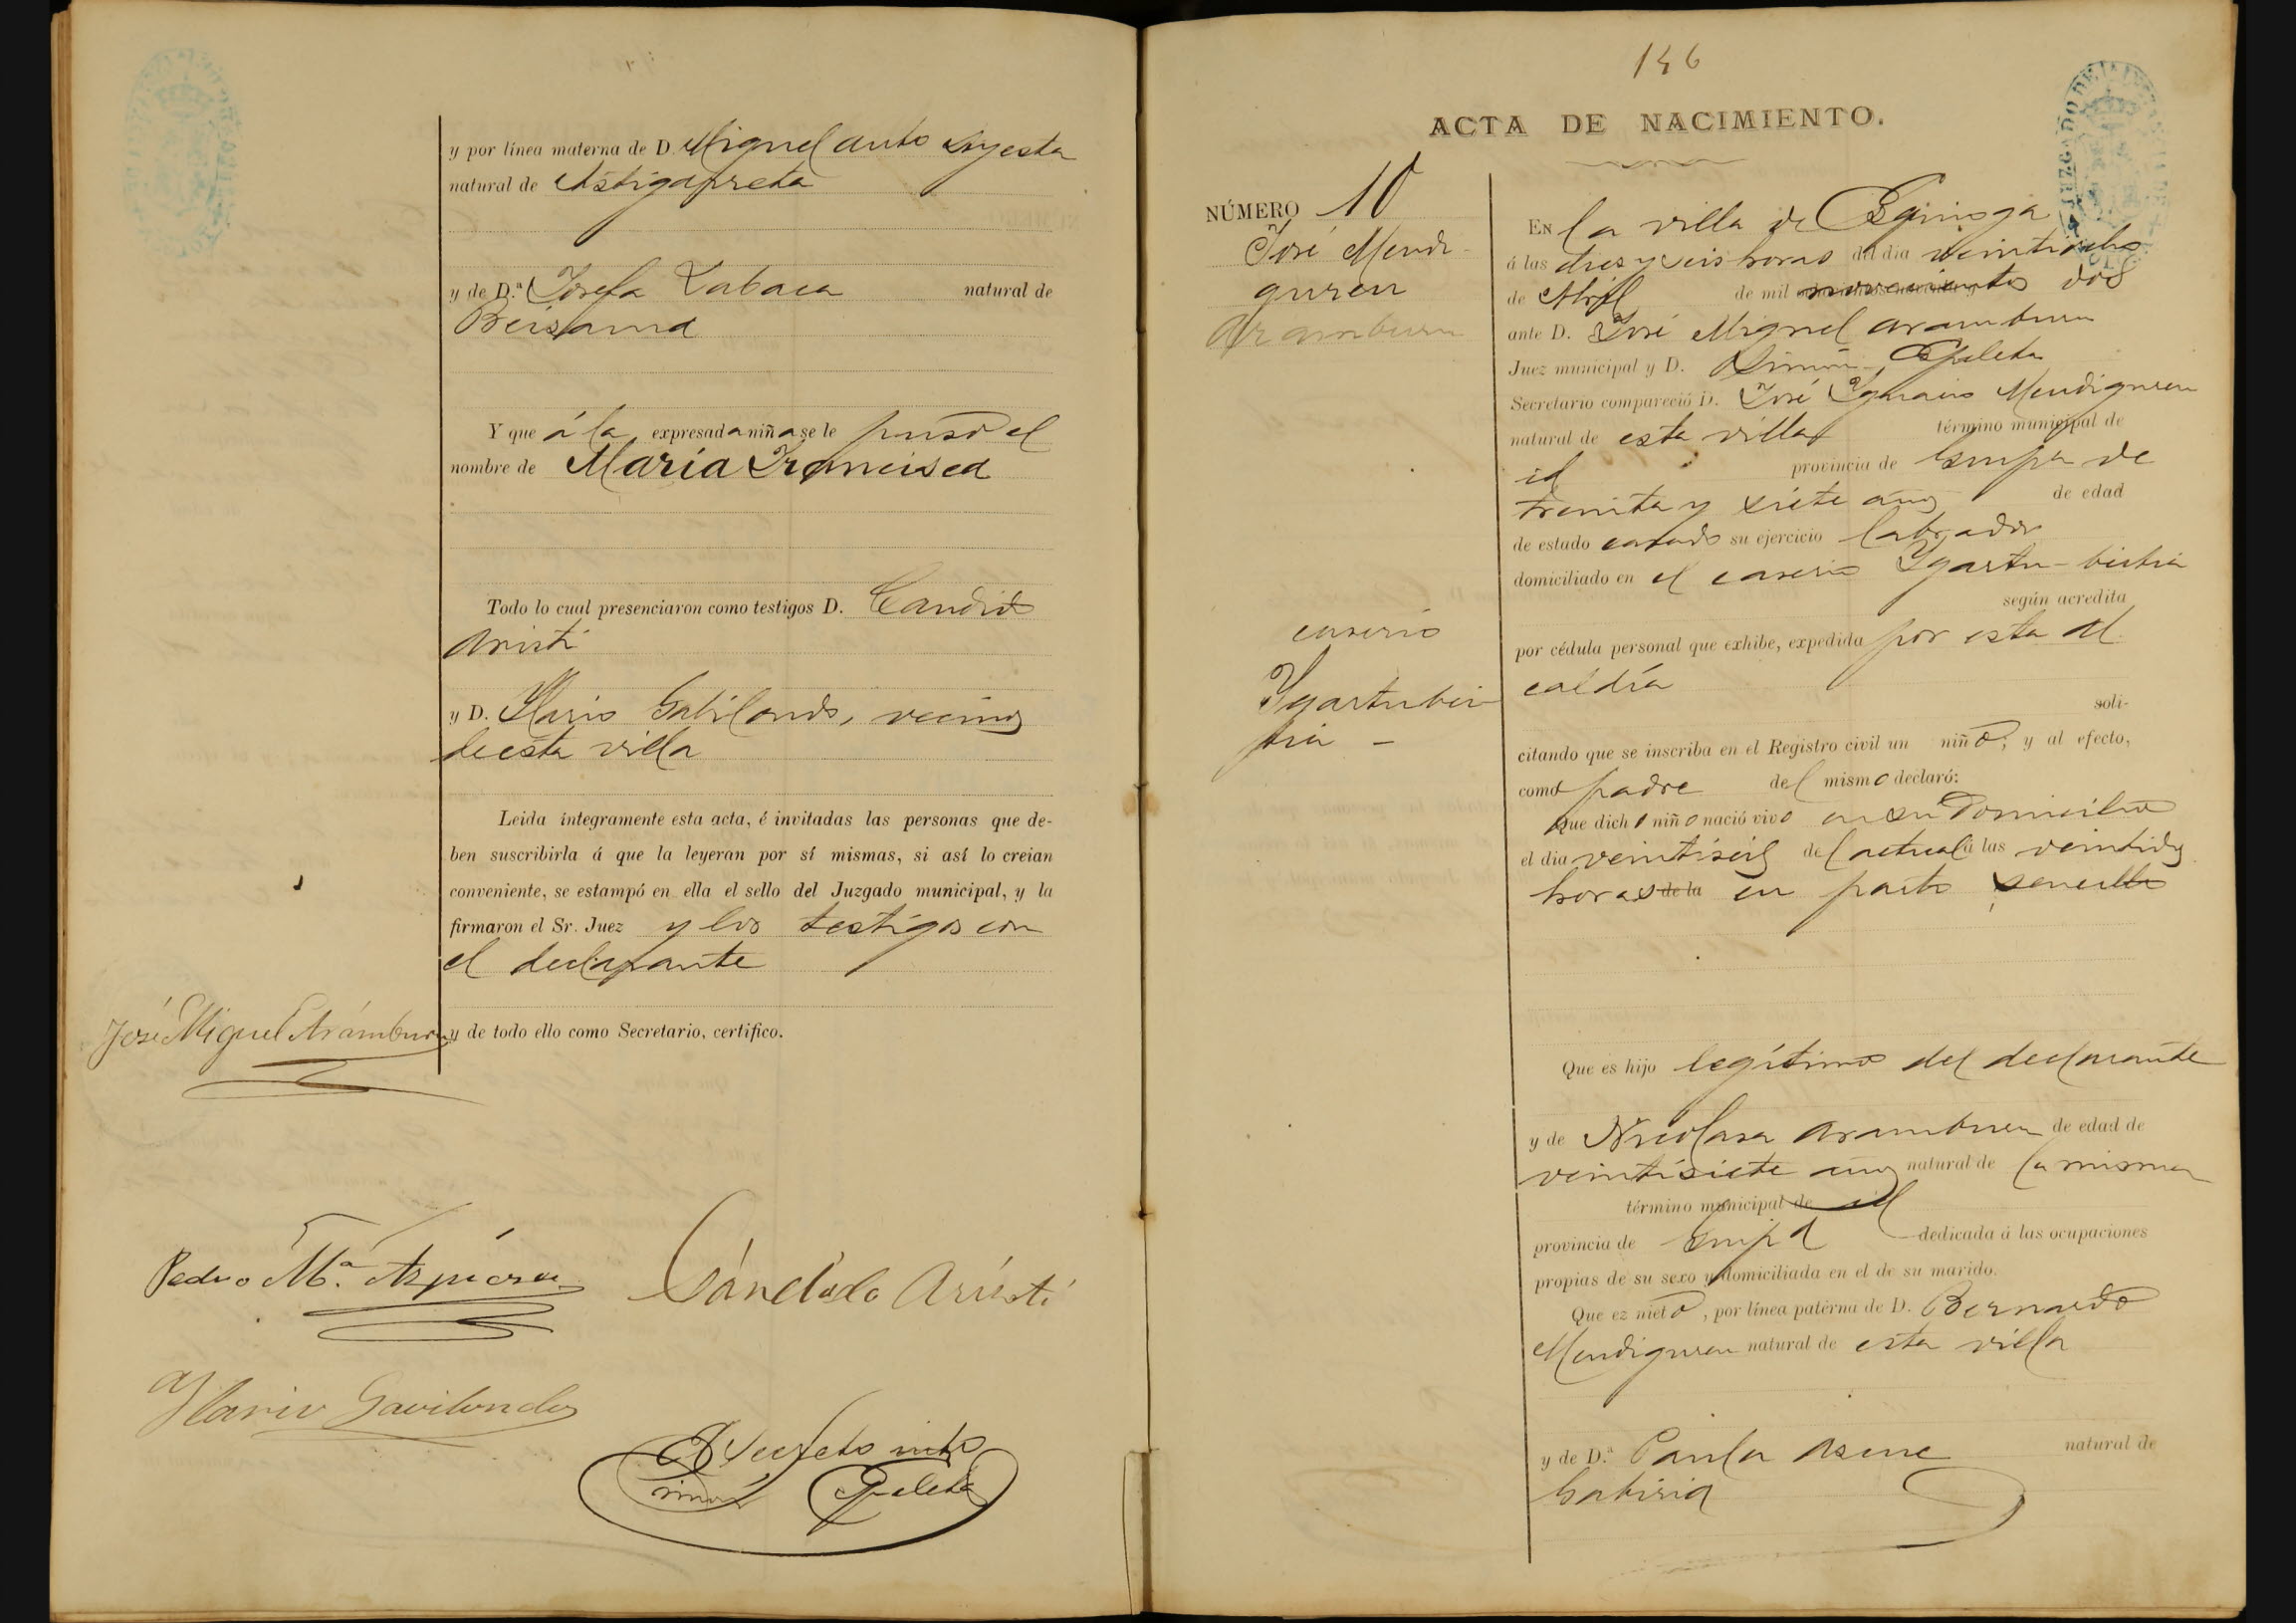 y por línea materna de D. Miguel Anto
natural de Astigarreta
y de D.ª Josefa Zabaca natural de
Beisama
Y que á la expresada niña se le puso el
nombre de María Francisca
Todo lo cual presenciaron como testigos D. Candido
Aristi
y D. Ylario Gabilondo, vecinos
de esta villa
Leida íntegramente esta acta, é invitadas las personas que de-
ben suscribirla á que la leyeran por sí mismas, si así lo creian
conveniente, se estampó en ella el sello del Juzgado municipal, y la
firmaron el Sr. Juez y los testigos con
el declarante
José Miguel Arámburu
y de todo ello como Secretario, certifico.
Pedro M.ª Azpiazu
Cándido Aristi
Ylario Gavilondo
Simón Espeleta
146
ACTA DE NACIMIENTO.
NÚMERO 10
José Mendi-
guren
Aramburu
caserio
Ygartubei-
tia -
EN la villa de
á las diez y seis horas del dia veintiocho
de Abril de mil novecientos dos
ante D. José Miguel Aramburu
Juez municipal y D. Simón Espeleta
Secretario compareció D. José Ygnacio Mendiguren
natural de esta villa término municipal de
id provincia de Guipa de
treinta y siete años de edad
de estado casado su ejercicio labrador
domiciliado en el caserio Ygartu-beitia
según acredita
por cédula personal que exhibe, expedida por esta Al
caldía
soli-
citando que se inscriba en el Registro civil un niño; y al efecto,
como padre del mismo declaró:
Que dicho niño nació vivo en su Domicilio
el dia veintiseis del actual á las veintidos
horas de la en parto sencillo
Que es hijo legítimo del declarante
y de Nicolasa Aramburu de edad de
veintisiete años natural de la misma
término municipal de id
provincia de Guipa dedicada á las ocupaciones
propias de su sexo y domiciliada en el de su marido.
Que ez nieto, por línea paterna de D. Bernardo
Mendiguren natural de esta villa
y de D.ª Paula natural de
Gabiria